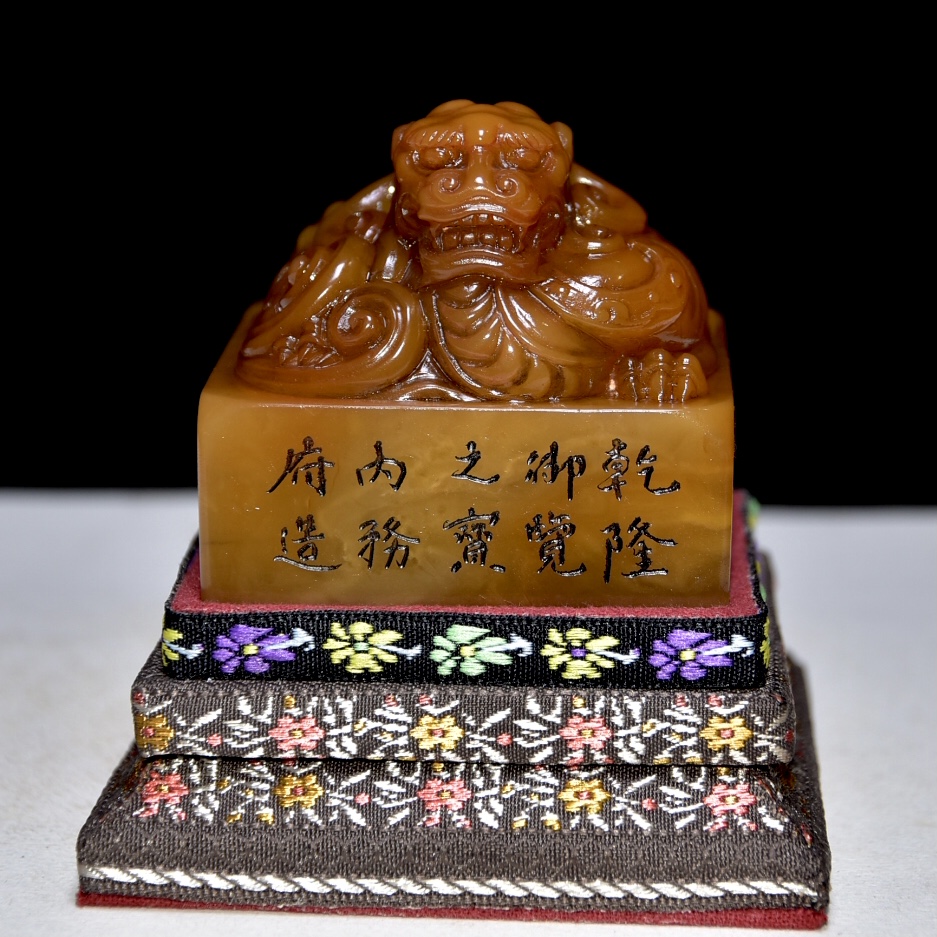 乾隆
御覽
之寶
内務
府造